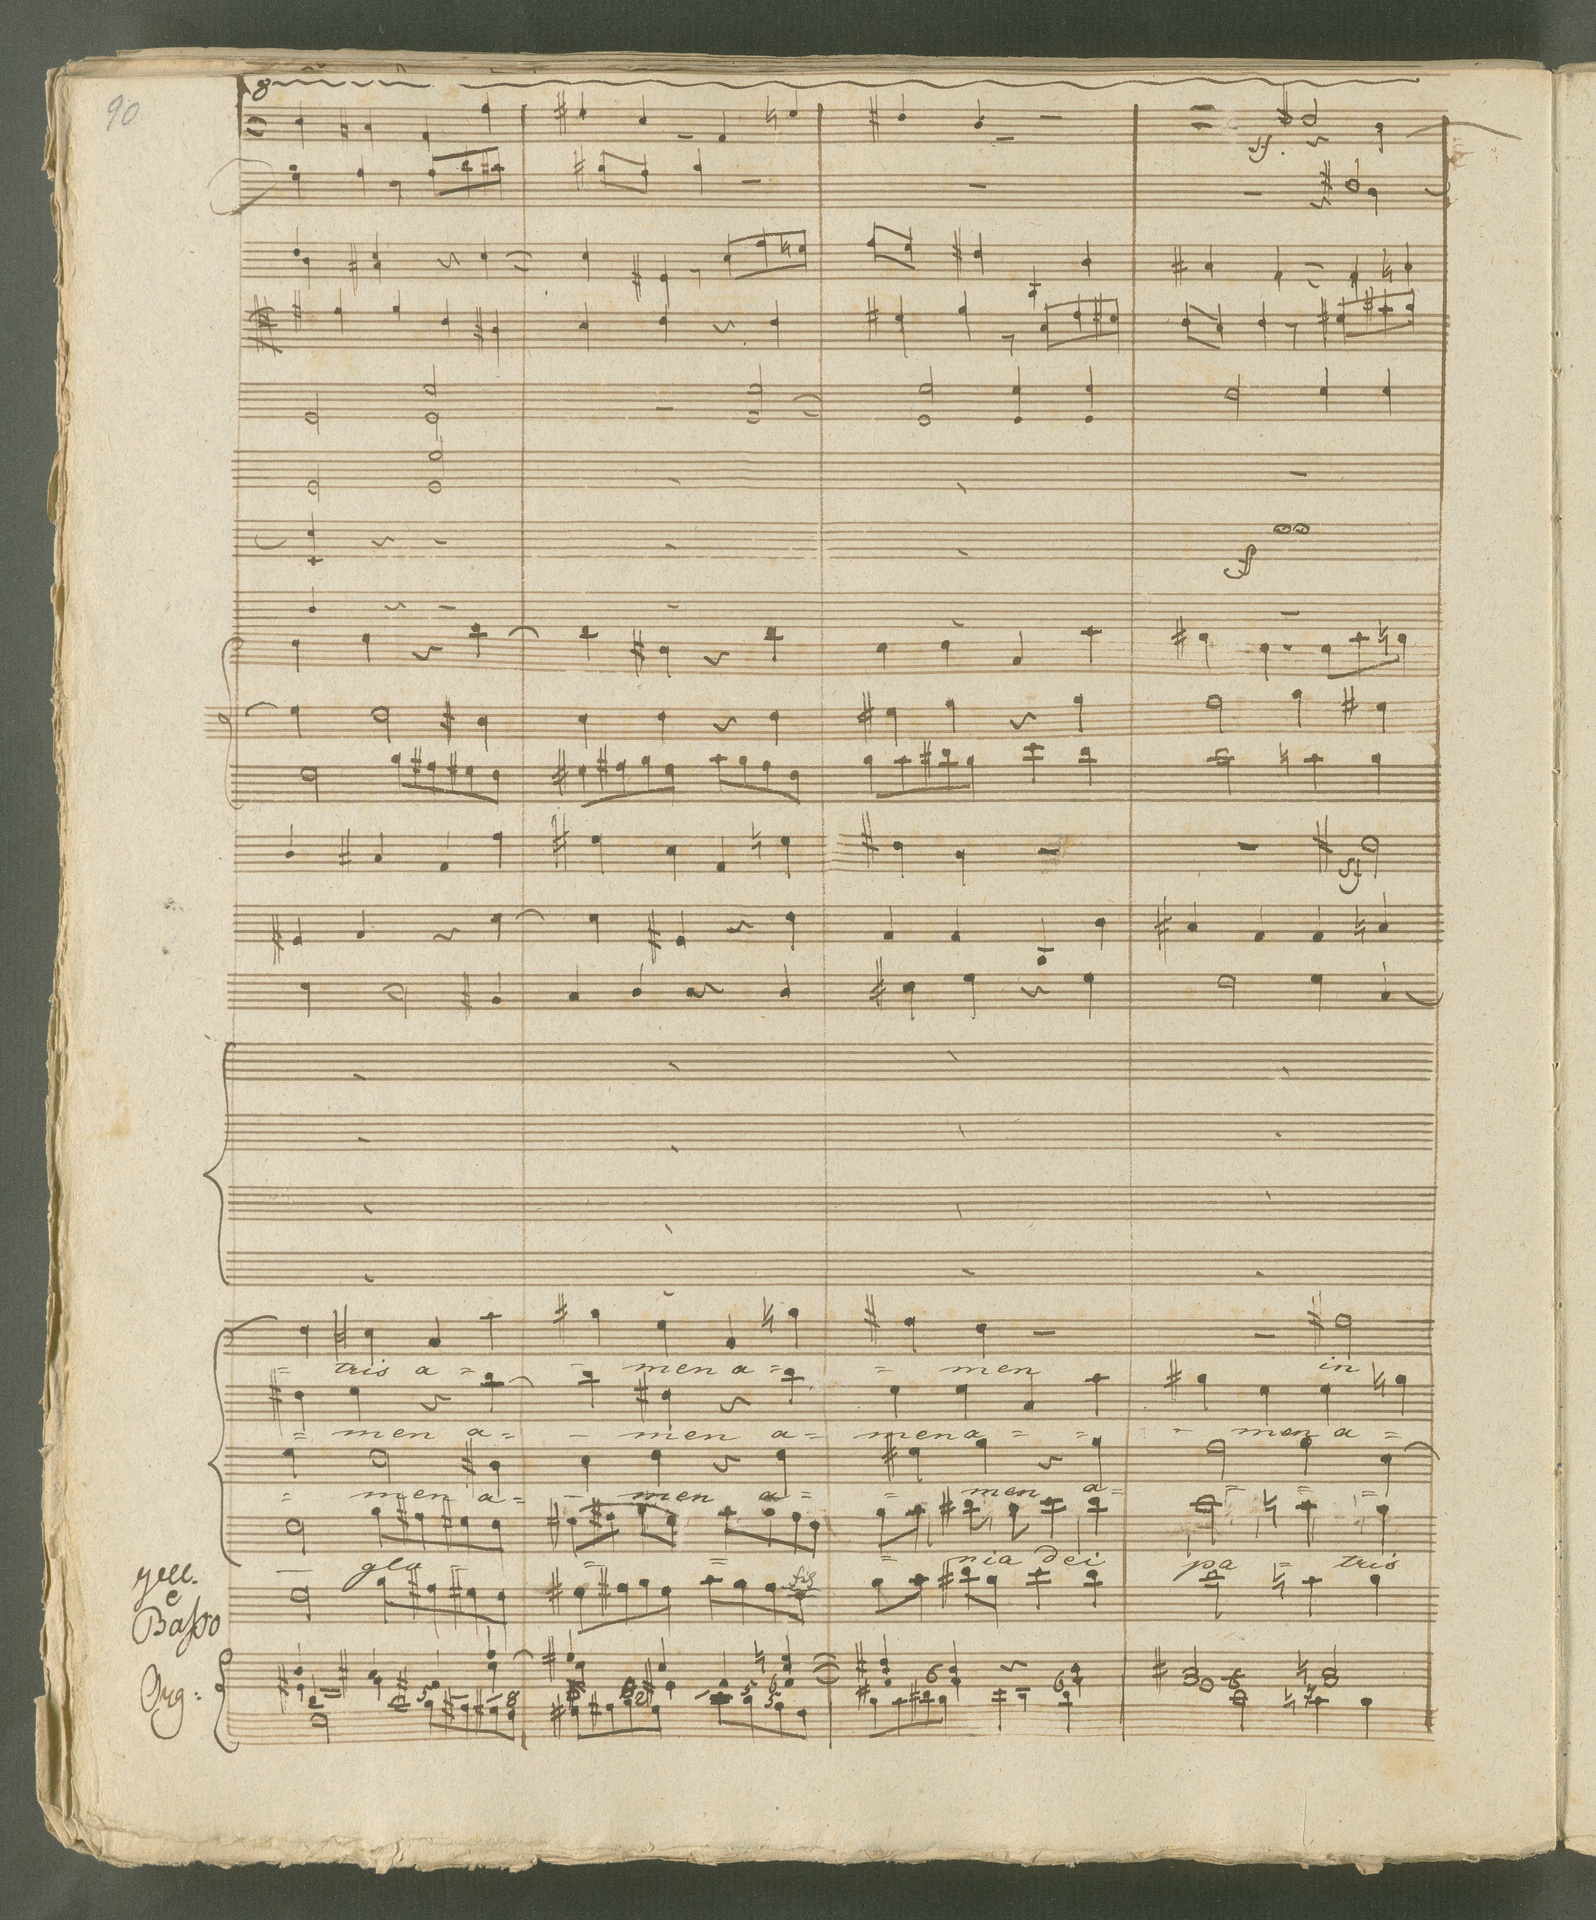 90
8
sf.
sf
sf
= tris a = - men a = = men in
= men a = - men a = men a = = - men a =
= men a = - men a = = men a = = =
glo - = = = ria dei pa = tris
vcll.
e
Basso
Org: